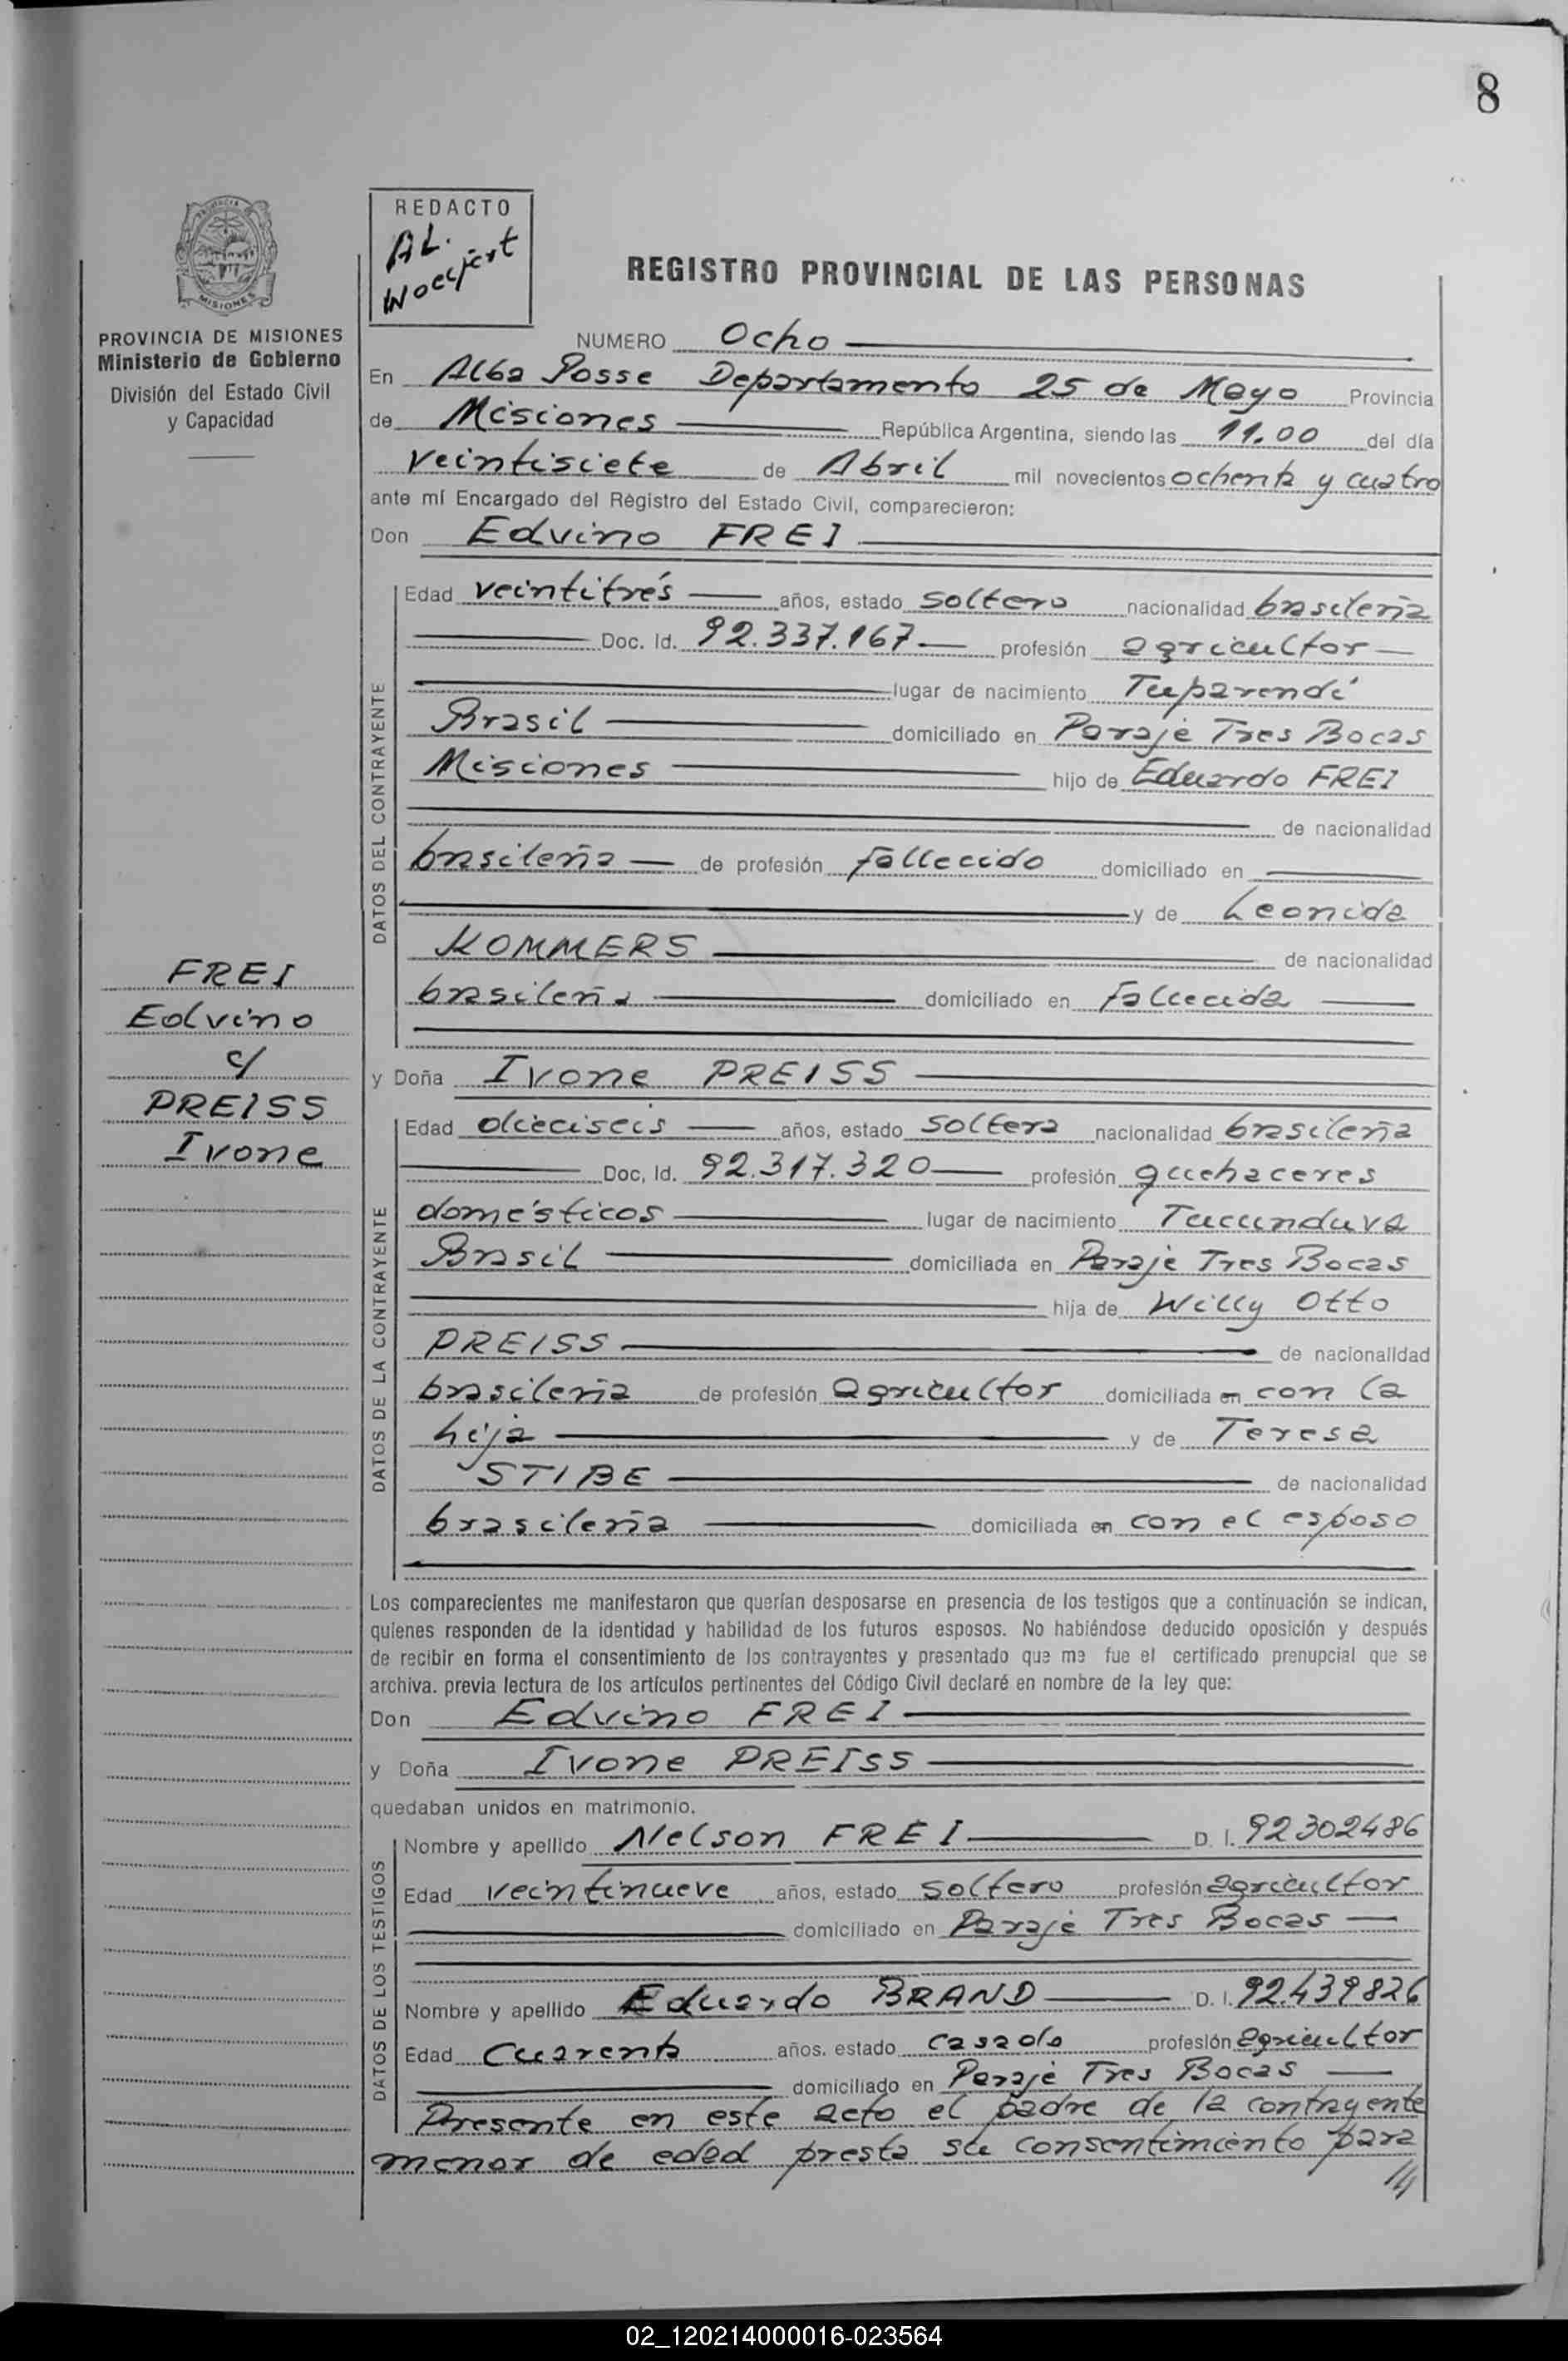 8
REDACTO
AL.
PROVINCIA DE MISIONES
Ministerio de Gobierno
División del Estado Civil
y Capacidad
REGISTRO PROVINCIAL DE LAS PERSONAS
NUMERO Ocho
En Alba Posse Departamento 25 de Mayo Provincia
de Misiones República Argentina, siendo las 11.00 del día
veintisiete de Abril mil novecientos ochenta y cuatro
ante mí Encargado del Registro del Estado Civil, comparecieron:
Don Edvino FREI
DATOS DEL CONTRAYENTE
Edad veintitrés años, estado soltero nacionalidad brasileña
Doc. Id. 92.337.167 profesión agricultor
lugar de nacimiento Tuparendí
Brasil domiciliado en Paraje Tres Bocas
Misiones hijo de Eduardo FREI
de nacionalidad
brasileña de profesión fallecido domiciliado en
y de Leonida
KOMMERS de nacionalidad
brasileña domiciliado en Fallecida
FREI
Edvino
c/
PREISS
Ivone
y Doña Ivone PREISS
DATOS DE LA CONTRAYENTE
Edad dieciseis años, estado soltera nacionalidad brasileña
Doc, Id. 92.317.320 profesión quehaceres
domésticos lugar de nacimiento Tucunduva
Brasil domiciliada en Paraje Tres Bocas
hija de Willy Otto
PREISS de nacionalidad
brasileña de profesión agricultor domiciliada en con la
hija y de Teresa
STIBE de nacionalidad
brasileña domiciliada en con el esposo
Los comparecientes me manifestaron que querían desposarse en presencia de los testigos que a continuación se indican,
quienes responden de la identidad y habilidad de los futuros esposos. No habiéndose deducido oposición y después
de recibir en forma el consentimiento de los contrayentes y presentado que me fue el certificado prenupcial que se
archiva. previa lectura de los artículos pertinentes del Código Civil declaré en nombre de la ley que:
Don Edvino FREI
y Doña Ivone PREISS
quedaban unidos en matrimonio.
DATOS DE LOS TESTIGOS
Nombre y apellido Nelson FREI D. I. 92302486
Edad veintinueve años, estado soltero profesión agricultor
domiciliado en Paraje Tres Bocas
Nombre y apellido Eduardo BRAND D. I. 92.439826
Edad Cuarenta años. estado casado profesión agricultor
domiciliado en Paraje Tres Bocas
Presente en este acto el padre de la contrayente
menor de edad presta su consentimiento para
///
02_120214000016-023564